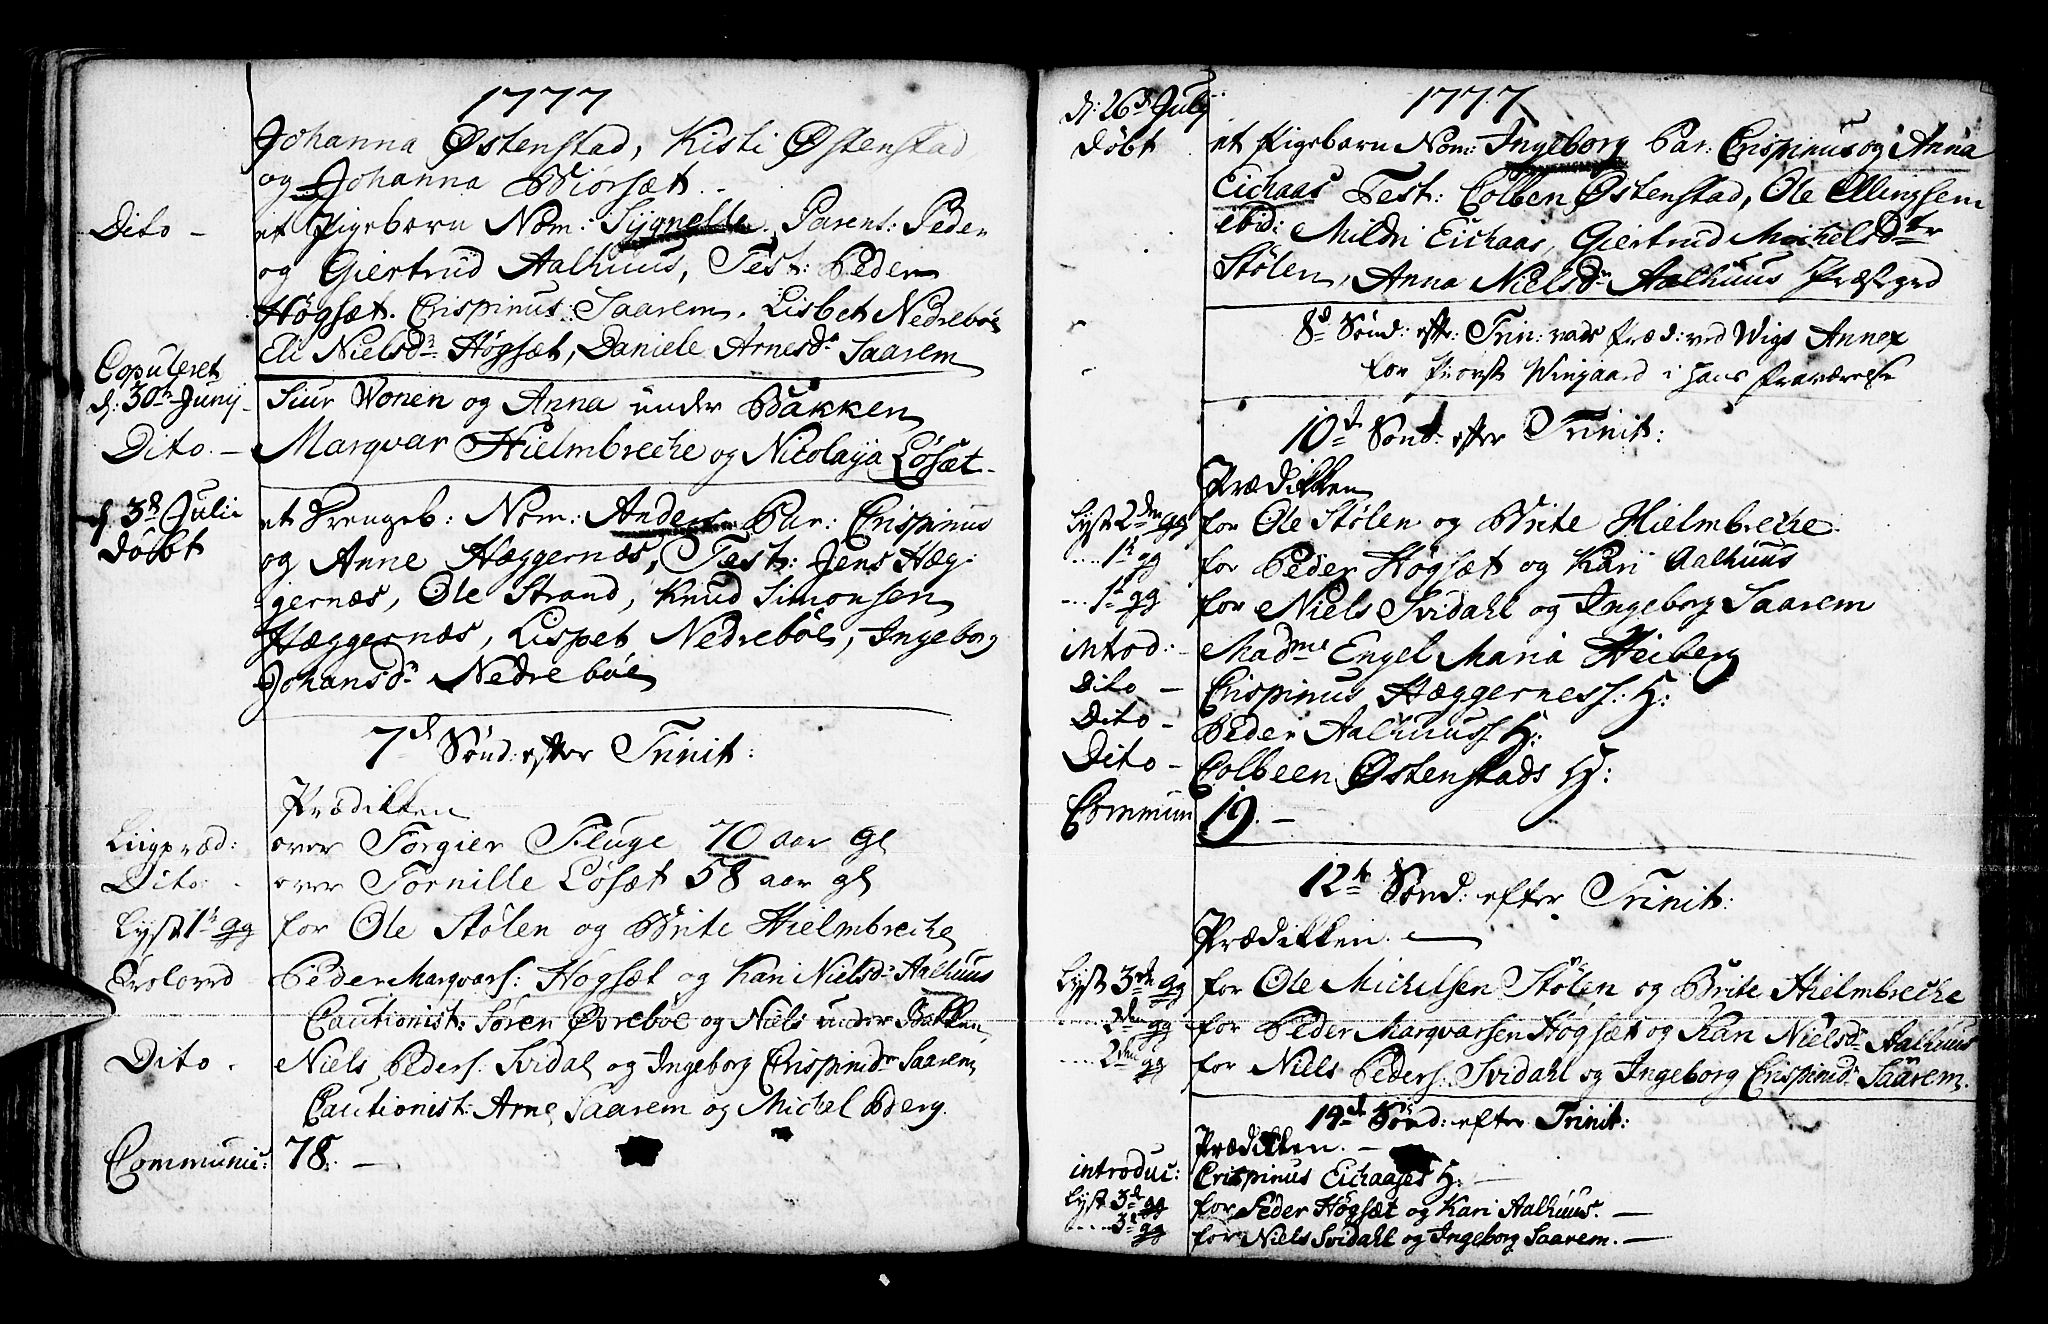 1777
Johanna Østenstad, Kisti Østenstad
og Johanna Biorsæt.
Dito - et Pigebarn Nom: Sygnelle. Parent: Peder
og Giertrud Aalhuus, Test: Peder
Høgsæt. Crispinus Saarem. Lisbet Nedrebøe
Eli Nielsdr Høgsæt, Daniele Arnesdr Saarem
Copuleret
d: 30te Junij - Siur Wonen og Anna under Bakken
Dito. - Marqvar Hielmbrecke og Nicolaija Løsæt -
d. 3de Julii et Drengeb: Nom: Anders Par: Crispinus
Døbt og Anne Hæggernæs, Test: Jens Hæg-
gernæs, Ole Strand, Knud Simonsen
Hæggernæs, Lispet Nedrebøe, Ingeborg
Johansdr Nedrebøe
7d Sønd: efter Trinit:
Prædikken
Liigpræd: over Torgier Fluge 70 aar gl
Dito: - over Tornille Løsæt 58 aar gl
Lyst 1te gg for Ole Stølen og Brite Hielmbrecke
Trolovd - Peder Marqvars: Høgsæt og Kari Nielsdr Aalhuus
Cautionist: Søren Øvrebøe og Niels under Bakken
Dito - Niels Peders: Svidal og Ingeborg Crispinidr Saarem
Cautionist: Arne Saarem og Michel Berg.
Communic: 78. -
d: 26de Julij 1777
Døbt et Pigebarn Nom: Ingeborg Par: Crispinus og Anna
Eichaas Test: Colben Østenstad, Ole Ellingsen
ibid: Mildri Eichaas, Giertrud Michelsdtr
Stølen, Anna Nielsdr Aalhuus Præstgrd
8d Sønd: eft: Trin: var Præd: ved Wigs Annex
for Provst Wingaard i hans Fraværelse
10d Sønd: efter Trinit:
Prædikken
Lyst 2den gg for Ole Stølen og Brite Hielmbrecke
.... 1te gg for Peder Høgsæt og Kari Aalhuus
... 1te gg for Niels Svidahl og Ingeborg Saarem
introd: - Madme Engel Maria Heiberg
Dito - Crispinus Hæggerness: H:
Dito - Peder Aalhuuss H:
Dito - Colbeen Østenstads H:
Commun 19. -
12te Sønd: efter Trinit:
Prædikken. -
Lyst 3de gg for Ole Michelsen Stølen og Brite Hielmbrecke
.... 2den gg for Peder Marqvarsen Høgsæt og Kari Nielsdr Aalhuus
.... 2den gg for Niels Peders: Svidahl og Ingeborg Crispinidr Saarem.
14de Sønd: efter Trinit:
Prædikken. -
introduc: Crispinus Eichaases H: -
Lyst 3de gg for Peder Høgsæt og Kari Aalhuus. -
.... 3de gg for Niels Svidahl og Ingeborg Saarem. -